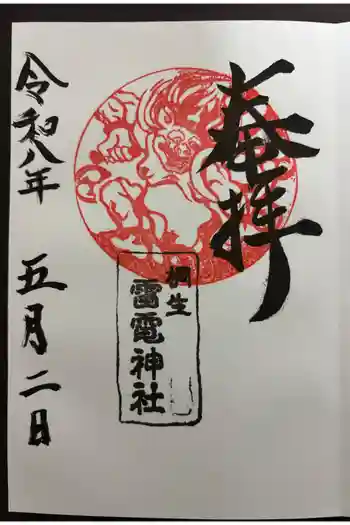 奉拝
桐生
雷電神社
令和八年 五月二日